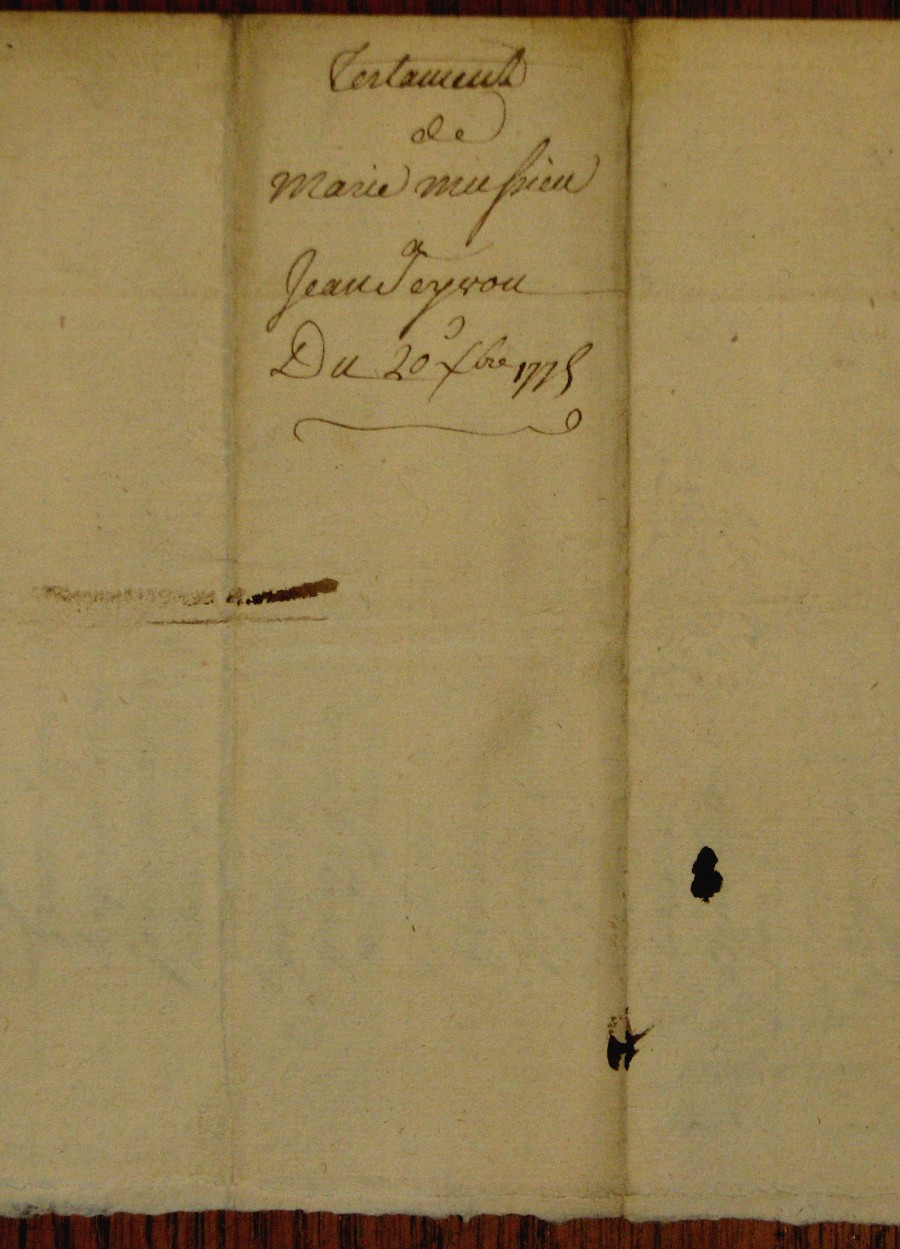 Testament
de
Marie mussieu
a
Jean Peyron
Du 20 Xbre 1775